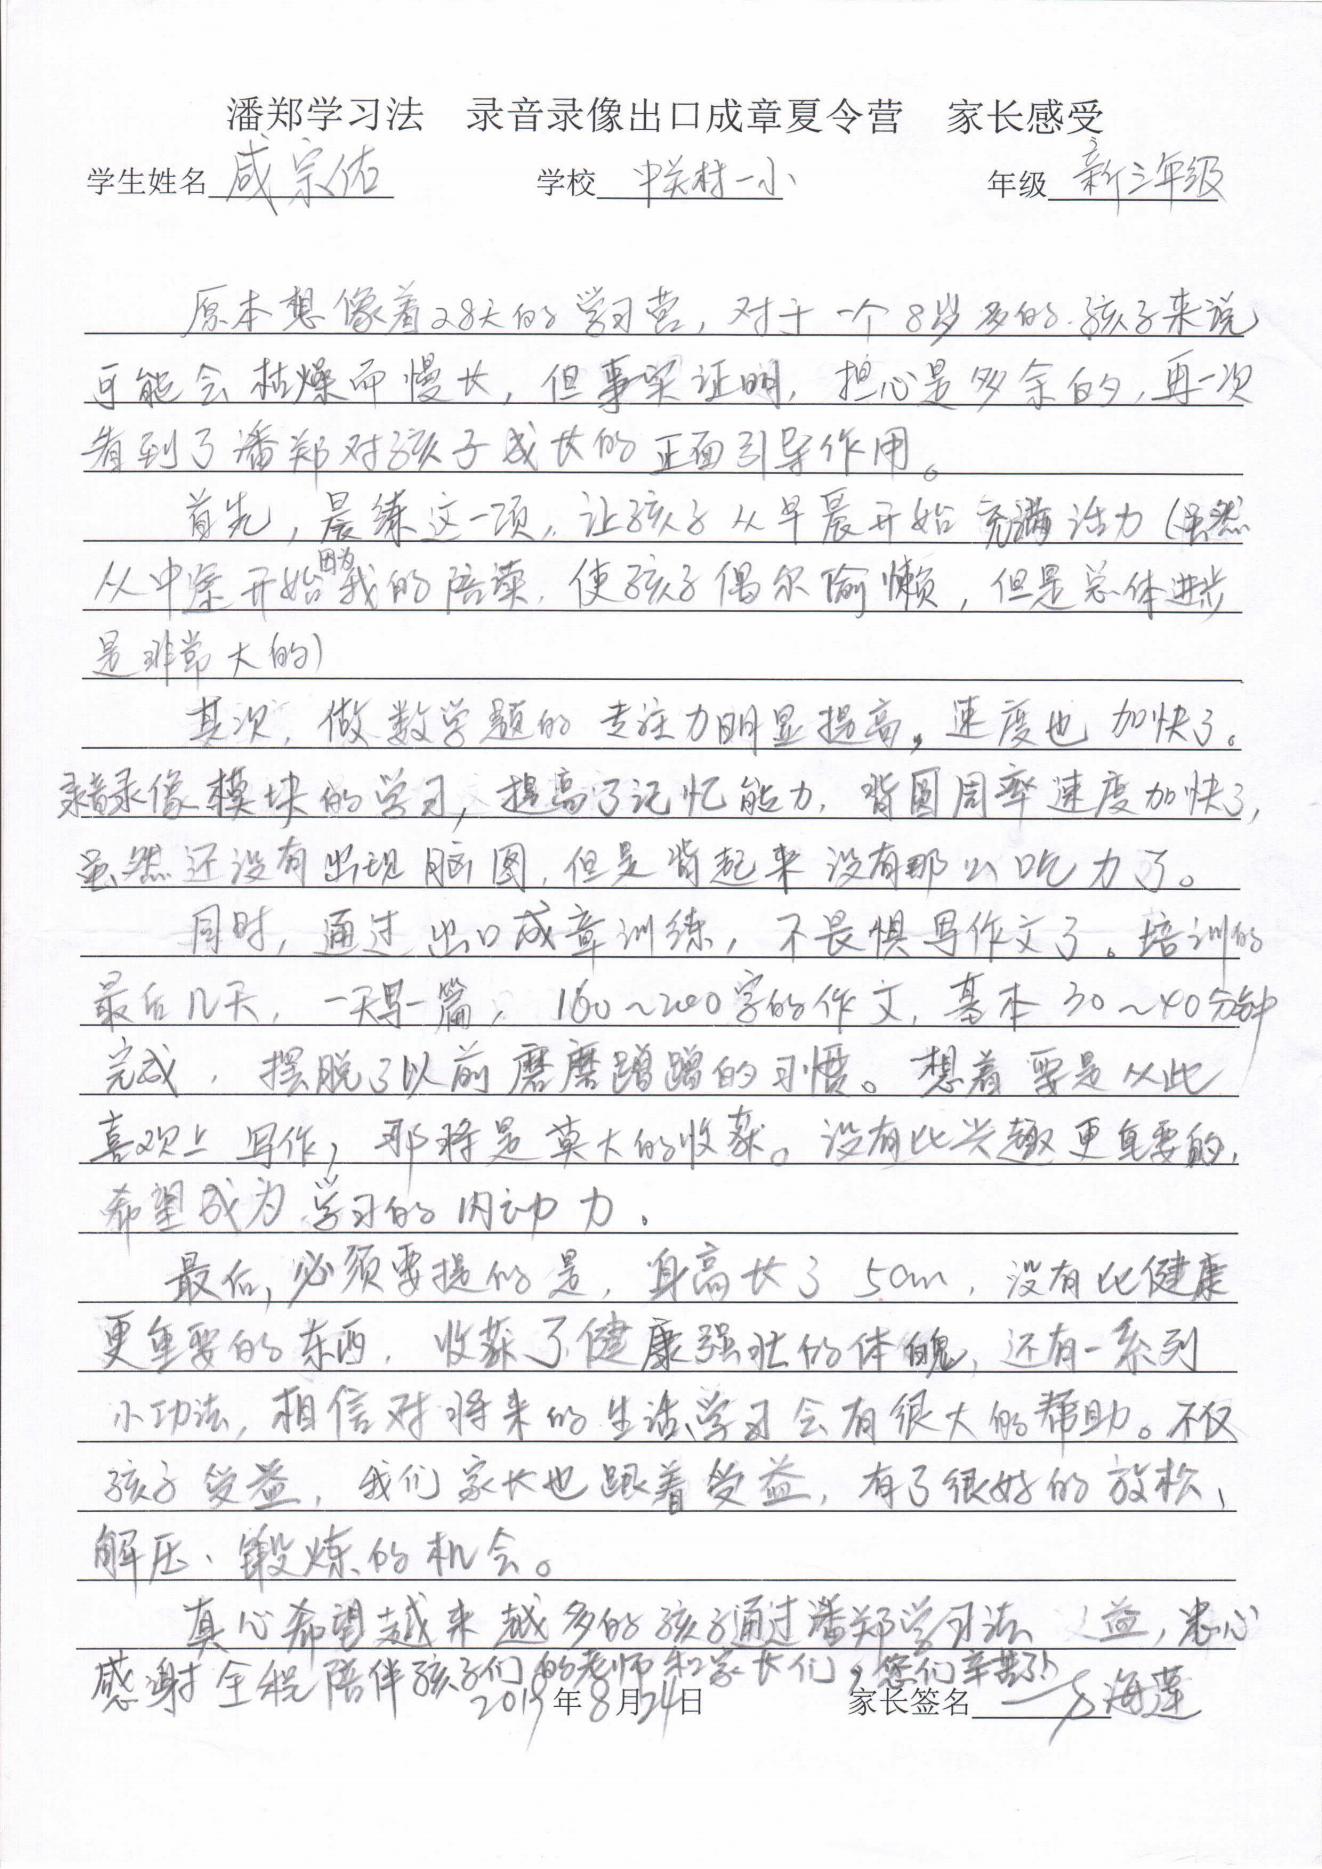 潘郑学习法 录音录像出口成章夏令营 家长感受
学生姓名 咸宗佑 学校 中关村一小 年级 新三年级
原本想像着28天的学习营，对于一个8岁多的孩子来说
可能会枯燥而慢长，但事实证明，担心是多余的，再一次
看到了潘郑对孩子成长的正面引导作用。
首先，晨练这一项，让孩子从早晨开始充满活力（虽然
从中途开始因为我的陪读，使孩子偶尔偷懒，但是总体进步
是非常大的）
其次，做数学题的专注力明显提高，速度也加快了。
录音录像模块的学习，提高了记忆能力，背圆周率速度加快了，
虽然还没有出现脑图，但是背起来没有那么吃力了。
同时，通过出口成章训练，不畏惧写作文了。培训的
最后几天，一天写一篇，160～200字的作文，基本30～40分钟
完成，摆脱了以前磨磨蹭蹭的习惯。想着要是从此
喜欢上写作，那将是莫大的收获。没有比兴趣更重要的，
希望成为学习的内动力。
最后，必须要提的是，身高长了5cm，没有比健康
更重要的东西，收获了健康强壮的体魄，还有一系列
小功法，相信对将来的生活、学习会有很大的帮助。不仅
孩子受益，我们家长也跟着受益，有了很好的放松、
解压、锻炼的机会。
真心希望越来越多的孩子通过潘郑学习法 益，忠心
感谢全程陪伴孩子们的老师和家长们，您们辛苦了！
2019年8月24日 家长签名 海莲